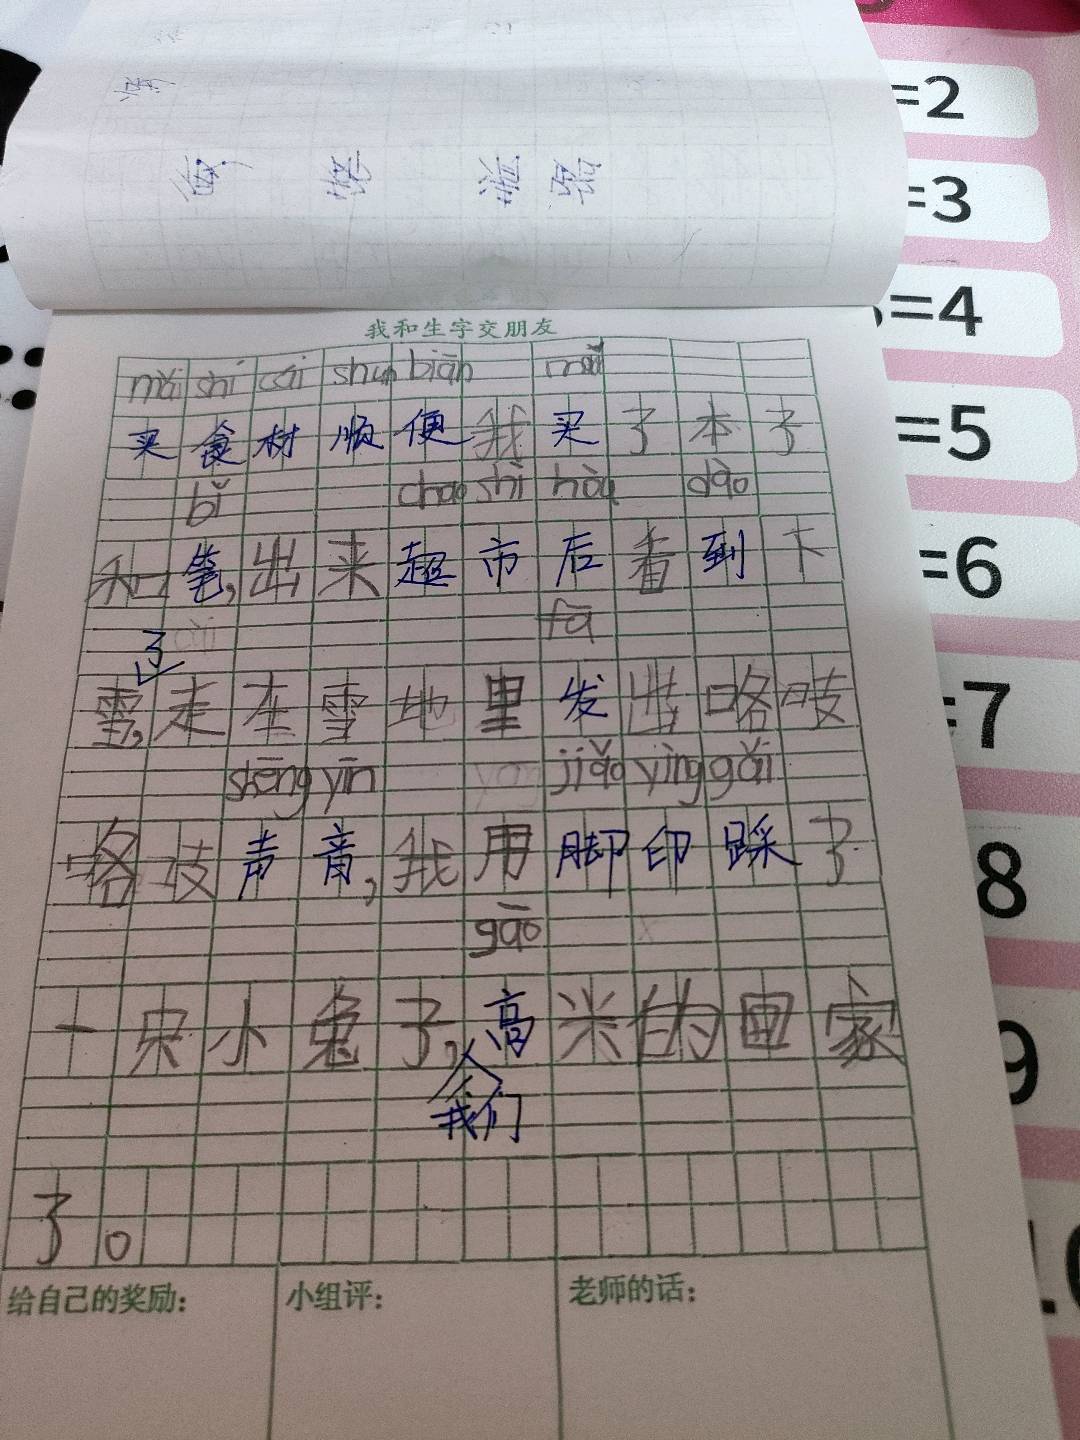 =2
=3
=4
=5
=6
=7
8
9
我和生字交朋友
mǎi shí cái shùn biàn mǎi
买食材顺便我买了本子
bǐ chao shì hòu dào
和笔,出来超市后看到下
了
fā
雪,走在雪地里发出咯吱
shēng yīn jiǎo yìn gǎi
咯吱声音,我用脚印踩了
gāo
一只小兔子,高米的画家
我们
了。
给自己的奖励:
小组评:
老师的话: